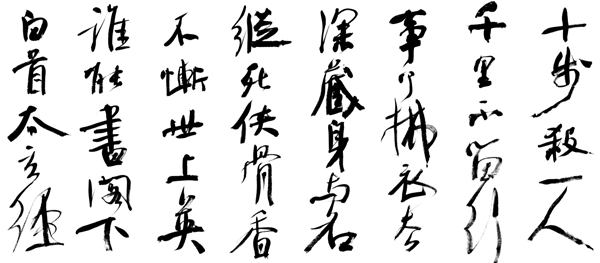 十步殺一人
千里不留行
事了拂衣去
深藏身與名
縱死俠骨香
不慚世上英
誰能書閣下
白首太玄經